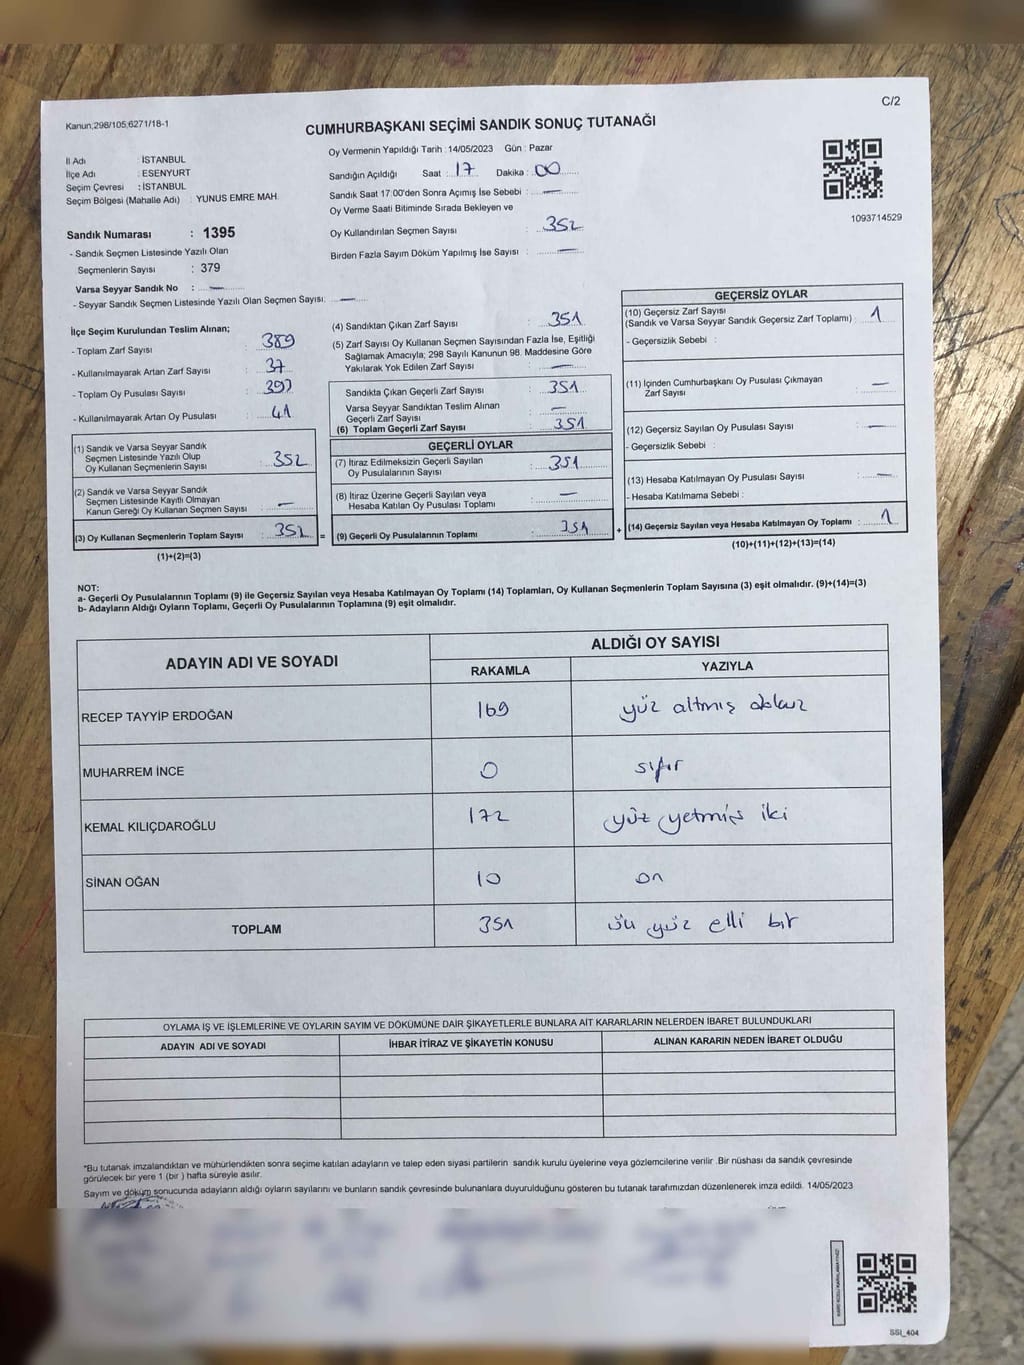 C/2
Kanun;298/105;6271/18-1
CUMHURBAŞKANI SEÇİMİ SANDIK SONUÇ TUTANAĞI
İl Adı : İSTANBUL
İlçe Adı : ESENYURT
Seçim Çevresi : İSTANBUL
Seçim Bölgesi (Mahalle Adı) : YUNUS EMRE MAH.
Sandık Numarası : 1395
- Sandık Seçmen Listesinde Yazılı Olan
Seçmenlerin Sayısı : 379
Varsa Seyyar Sandık No : —
- Seyyar Sandık Seçmen Listesinde Yazılı Olan Seçmen Sayısı: —
Oy Vermenin Yapıldığı Tarih : 14/05/2023 Gün : Pazar
Sandığın Açıldığı Saat : 17 Dakika : 00
Sandık Saat 17:00'den Sonra Açımış İse Sebebi : —
Oy Verme Saati Bitiminde Sırada Bekleyen ve
Oy Kullandırılan Seçmen Sayısı : 352
Birden Fazla Sayım Döküm Yapılmış İse Sayısı : —
1093714529
İlçe Seçim Kurulundan Teslim Alınan;
- Toplam Zarf Sayısı : 389
- Kullanılmayarak Artan Zarf Sayısı : 37
- Toplam Oy Pusulası Sayısı : 393
- Kullanılmayarak Artan Oy Pusulası : 41
(1) Sandık ve Varsa Seyyar Sandık
Seçmen Listesinde Yazılı Olup
Oy Kullanan Seçmenlerin Sayısı : 352
(2) Sandık ve Varsa Seyyar Sandık
Seçmen Listesinde Kayıtlı Olmayan
Kanun Gereği Oy Kullanan Seçmen Sayısı : —
(3) Oy Kullanan Seçmenlerin Toplam Sayısı : 352 =
(1)+(2)=(3)
(4) Sandıktan Çıkan Zarf Sayısı : 351
(5) Zarf Sayısı Oy Kullanan Seçmen Sayısından Fazla İse, Eşitliği
Sağlamak Amacıyla; 298 Sayılı Kanunun 98. Maddesine Göre
Yakılarak Yok Edilen Zarf Sayısı : —
Sandıkta Çıkan Geçerli Zarf Sayısı : 351
Varsa Seyyar Sandıktan Teslim Alınan
Geçerli Zarf Sayısı : —
(6) Toplam Geçerli Zarf Sayısı : 351
GEÇERLİ OYLAR
(7) İtiraz Edilmeksizin Geçerli Sayılan
Oy Pusulalarının Sayısı : 351
(8) İtiraz Üzerine Geçerli Sayılan veya
Hesaba Katılan Oy Pusulası Toplamı : —
(9) Geçerli Oy Pusulalarının Toplamı : 351 +
GEÇERSİZ OYLAR
(10) Geçersiz Zarf Sayısı
(Sandık ve Varsa Seyyar Sandık Geçersiz Zarf Toplamı) : 1
- Geçersizlik Sebebi :
(11) İçinden Cumhurbaşkanı Oy Pusulası Çıkmayan
Zarf Sayısı : —
(12) Geçersiz Sayılan Oy Pusulası Sayısı : —
- Geçersizlik Sebebi :
(13) Hesaba Katılmayan Oy Pusulası Sayısı : —
- Hesaba Katılmama Sebebi :
(14) Geçersiz Sayılan veya Hesaba Katılmayan Oy Toplamı : 1
(10)+(11)+(12)+(13)=(14)
NOT:
a- Geçerli Oy Pusulalarının Toplamı (9) ile Geçersiz Sayılan veya Hesaba Katılmayan Oy Toplamı (14) Toplamları, Oy Kullanan Seçmenlerin Toplam Sayısına (3) eşit olmalıdır. (9)+(14)=(3)
b- Adayların Aldığı Oyların Toplamı, Geçerli Oy Pusulalarının Toplamına (9) eşit olmalıdır.
ADAYIN ADI VE SOYADI
ALDIĞI OY SAYISI
RAKAMLA YAZIYLA
RECEP TAYYİP ERDOĞAN 169 yüz altmış dokuz
MUHARREM İNCE 0 sıfır
KEMAL KILIÇDAROĞLU 172 yüz yetmiş iki
SİNAN OĞAN 10 on
TOPLAM 351 üç yüz elli bir
OYLAMA İŞ VE İŞLEMLERİNE VE OYLARIN SAYIM VE DÖKÜMÜNE DAİR ŞİKAYETLERLE BUNLARA AİT KARARLARIN NELERDEN İBARET BULUNDUKLARI
ADAYIN ADI VE SOYADI İHBAR İTİRAZ VE ŞİKAYETİN KONUSU ALINAN KARARIN NEDEN İBARET OLDUĞU
*Bu tutanak imzalandıktan ve mühürlendikten sonra seçime katılan adayların ve talep eden siyasi partilerin sandık kurulu üyelerine veya gözlemcilerine verilir .Bir nüshası da sandık çevresinde
görülecek bir yere 1 (bir ) hafta süreyle asılır.
Sayım ve döküm sonucunda adayların aldığı oyların sayılarını ve bunların sandık çevresinde bulunanlara duyurulduğunu gösteren bu tutanak tarafımızdan düzenlenerek imza edildi. 14/05/2023
SSI_404